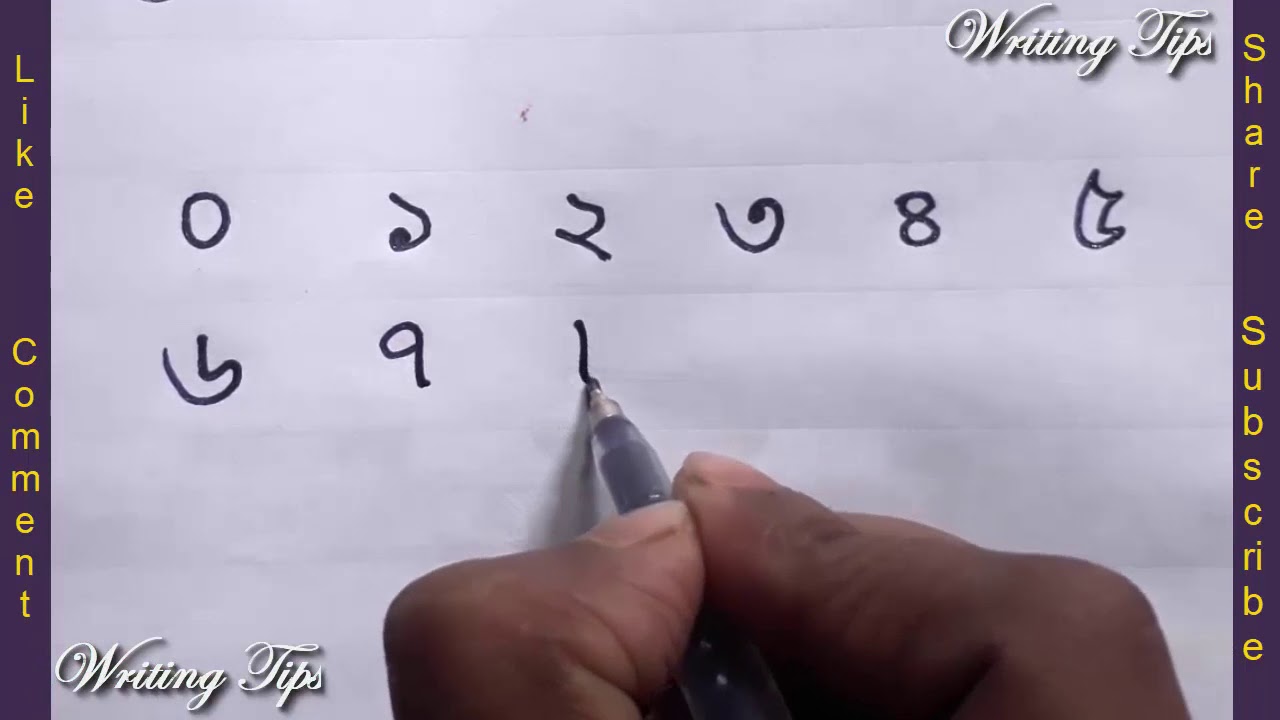 Writing Tips
Like
Share
০ ১ ২ ৩ ৪ ৫
৬ ৭
Comment
Subscribe
Writing Tips